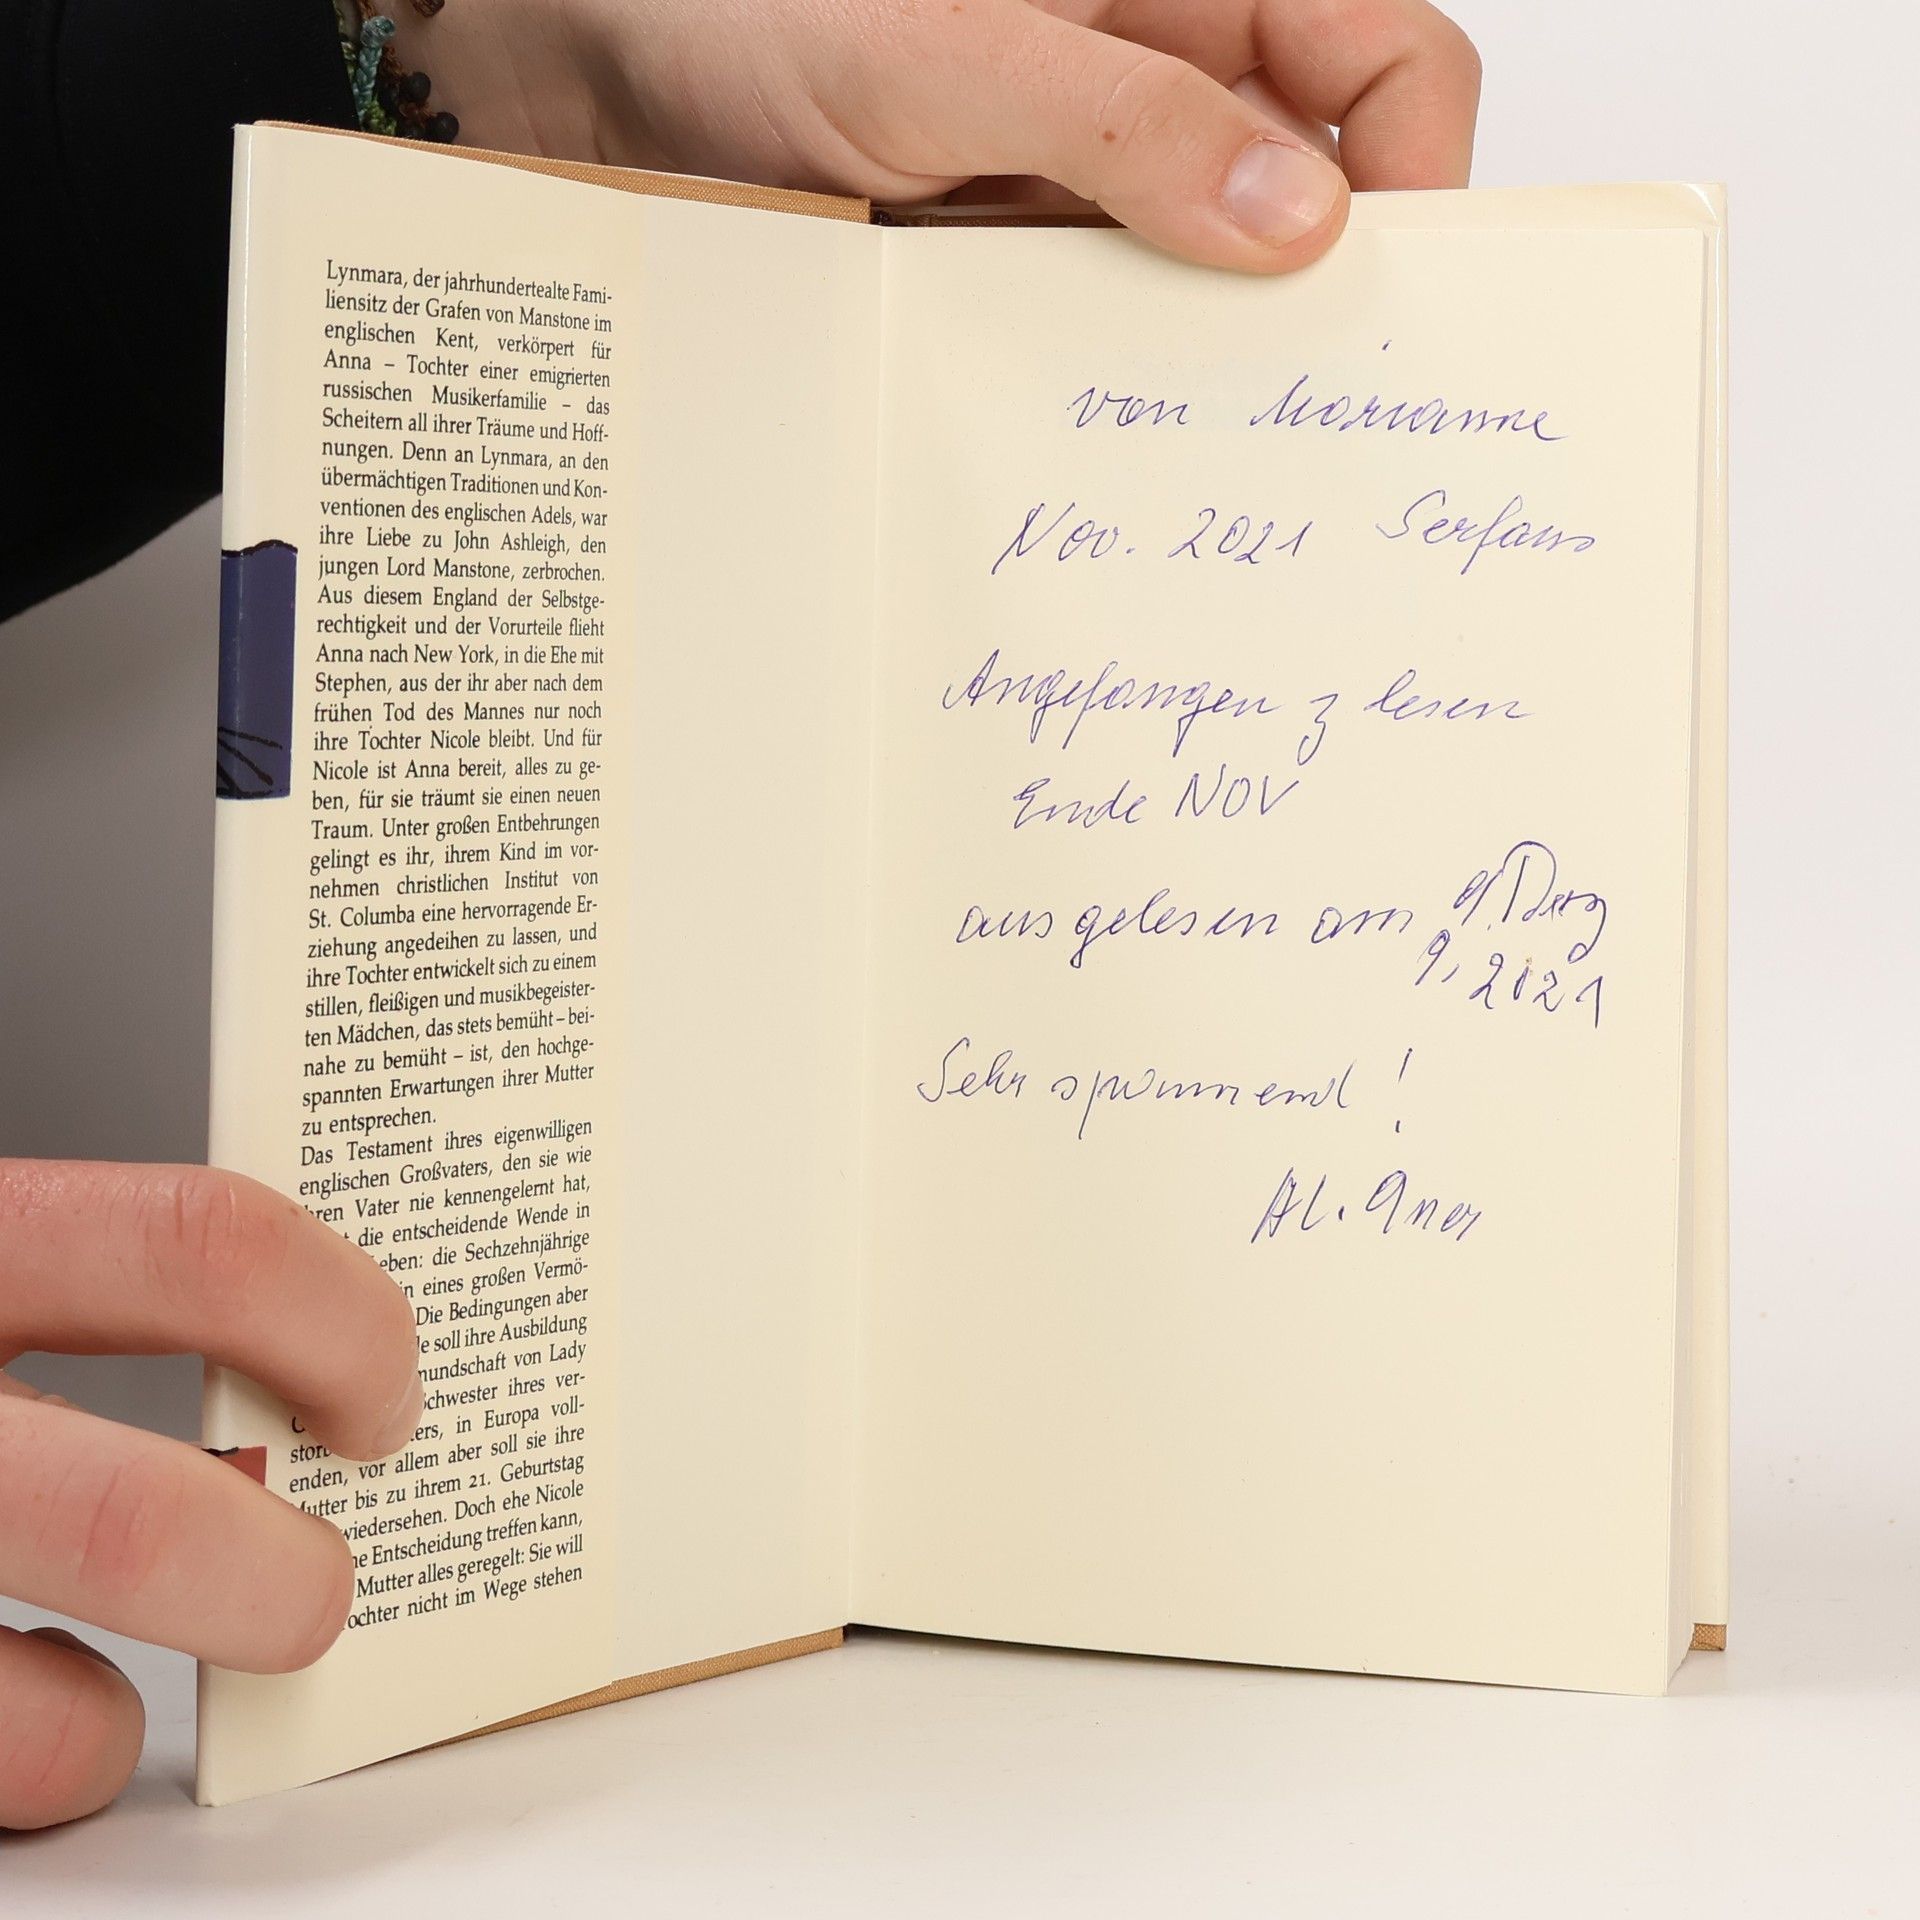 Lynmara, der jahrhundertealte Fami-
liensitz der Grafen von Manstone im
englischen Kent, verkörpert für
Anna – Tochter einer emigrierten
russischen Musikerfamilie – das
Scheitern all ihrer Träume und Hoff-
nungen. Denn an Lynmara, an den
übermächtigen Traditionen und Kon-
ventionen des englischen Adels, war
ihre Liebe zu John Ashleigh, den
jungen Lord Manstone, zerbrochen.
Aus diesem England der Selbstge-
rechtigkeit und der Vorurteile flieht
Anna nach New York, in die Ehe mit
Stephen, aus der ihr aber nach dem
frühen Tod des Mannes nur noch
ihre Tochter Nicole bleibt. Und für
Nicole ist Anna bereit, alles zu ge-
ben, für sie träumt sie einen neuen
Traum. Unter großen Entbehrungen
gelingt es ihr, ihrem Kind im vor-
nehmen christlichen Institut von
St. Columba eine hervorragende Er-
ziehung angedeihen zu lassen, und
ihre Tochter entwickelt sich zu einem
stillen, fleißigen und musikbegeister-
ten Mädchen, das stets bemüht – bei-
nahe zu bemüht – ist, den hochge-
spannten Erwartungen ihrer Mutter
zu entsprechen.
Das Testament ihres eigenwilligen
englischen Großvaters, den sie wie
ihren Vater nie kennengelernt hat,
die entscheidende Wende in
eben: die Sechzehnjährige
in eines großen Vermö-
Die Bedingungen aber
soll ihre Ausbildung
mundschaft von Lady
Schwester ihres ver-
ers, in Europa voll-
enden, vor allem aber soll sie ihre
Mutter bis zu ihrem 21. Geburtstag
wiedersehen. Doch ehe Nicole
ne Entscheidung treffen kann,
Mutter alles geregelt: Sie will
ochter nicht im Wege stehen
von Marianne
Nov. 2021 Serfaus
Angefangen z lesen
Ende NOV
ausgelesen am
9. 2021
Sehr spannend!